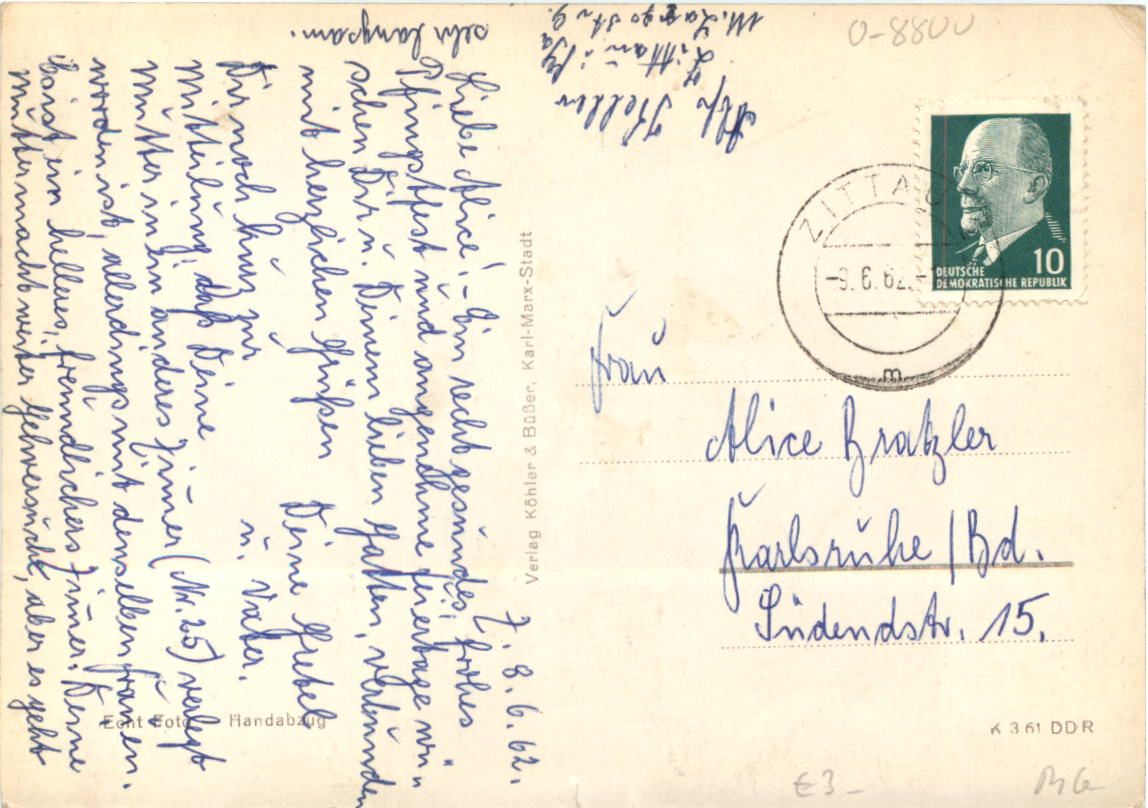 Z. 8.6.62.
Liebe Alice! - Ein recht gesundes, frohes
Pfingstfest und angenehme Feiertage wün-
schen Dir u. Deinem lieben Gatten, verbunden
mit herzlichen Grüßen Deine Gretel
u. Vater.
Dir noch kurz zur
Mitteilung, daß Deine
Mutter in ein anderes Zimmer (Nr. 25) verlegt
worden ist, allerdings mit denselben Frauen.
Es ist ein helleres, freundlichers Zimmer. Deine
Mutter macht weiter Gehversuche, aber es geht
sehr langsam.
Keller
Zittau i/Sa
Echt Foto Handabzug
Verlag Köhler & Büßer, Karl-Marx-Stadt
0-8800
ZITTAU
-9.6.62.-
m
10
DEUTSCHE
DEMOKRATISCHE REPUBLIK
Frau
Alice Bratzler
Karlsruhe/Bd.
Südendstr. 15.
K 3 61 DDR
€3-